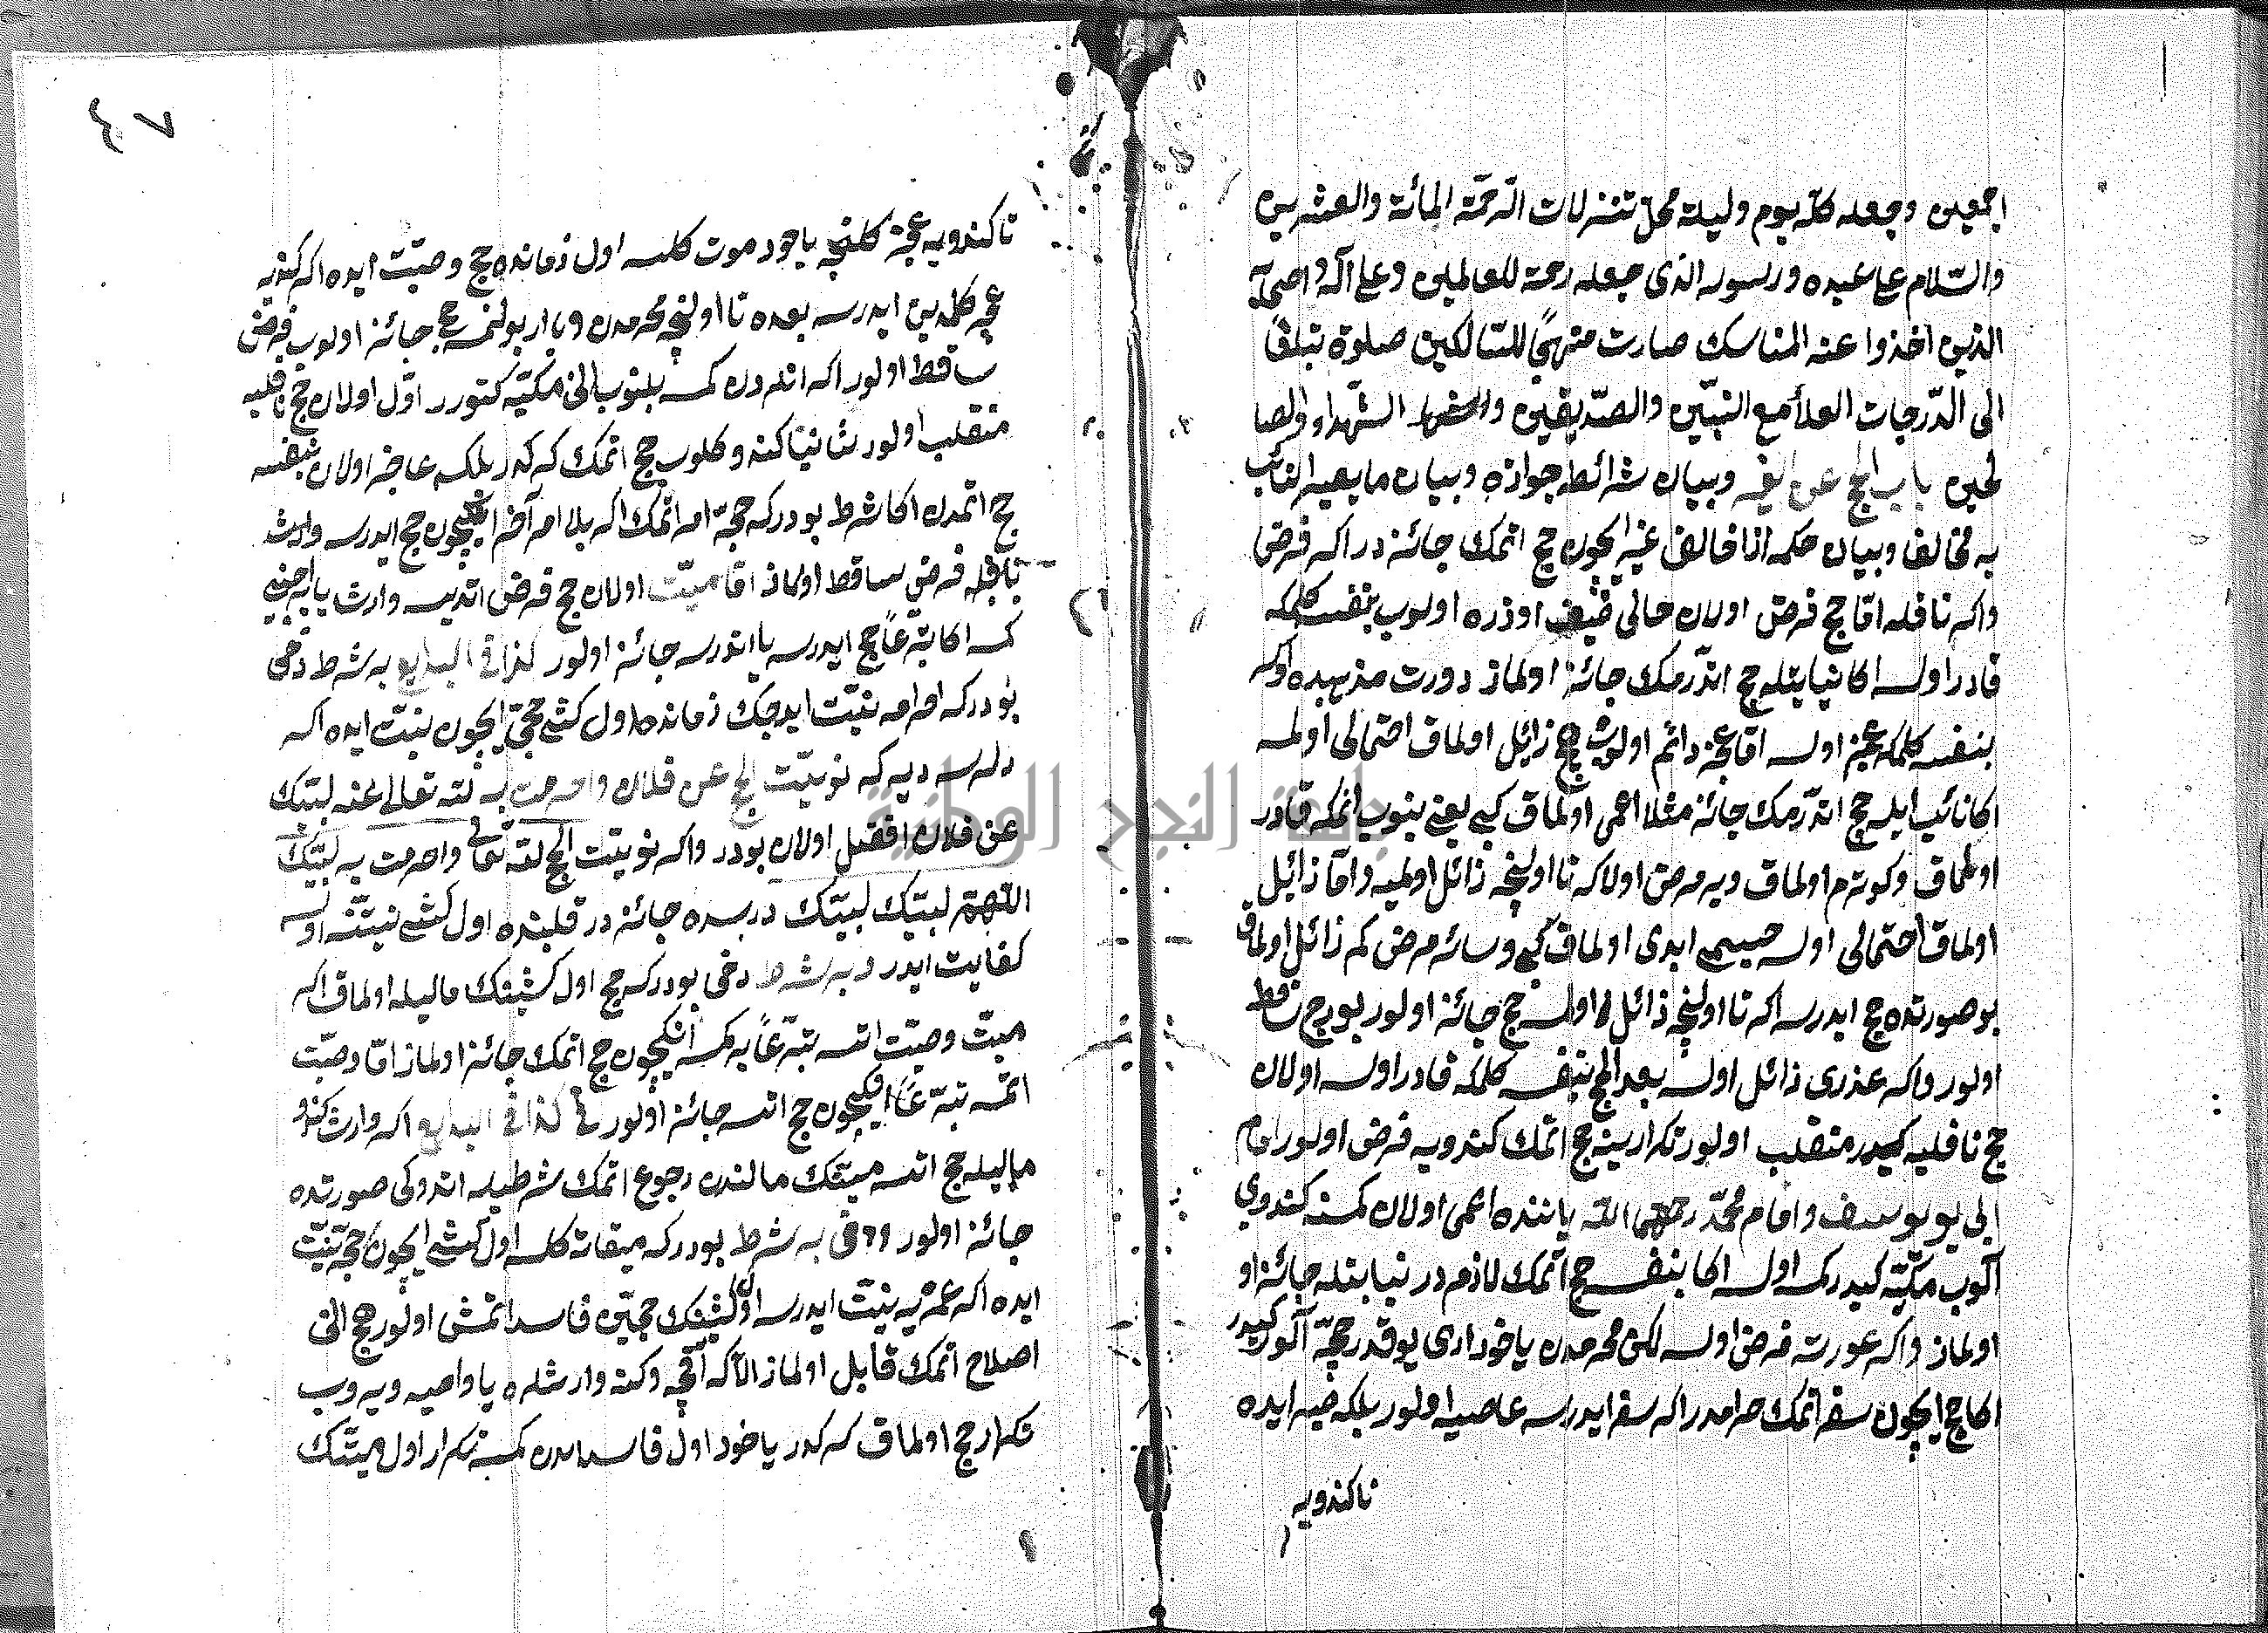 اجمعين وجعله كل يوم وليلة محل تنزلات الرحمة المائة والعشرين
والسلام على عبده ورسوله الذى جعله رحمة للعالمين وعلى آله واصحابه
الذين اخذوا عنه المناسك صارت منهجا للسالكين صلوة تبلغ
الى الدرجات العلا مع النبيين والصديقين والشهداء والصا
لحين باب الحج عن الغير وبيان شرائط جوازه وبيان ما يصير النائب
به مخالف وبيان حكمه اذا خالف غير ايچون حج اتمك جائز در اكر فرض
واكر نافله اما حج فرض اولان حالى اوزره اولوب بنفسه كلمكه
قادر اولسه اكا نيابتله حج اتدرمك جائز اولماز دورت مذهبده اكر
بنفسه كلمكه عجز اولسه اما عجز دائم اولوب زائل اولماق احتمالى اولمسه
اكا نائب ايله حج اتدرمك جائز مثلا اعمى اولماق كبى يعنى بنوب انمكه قادر
اولماق وكوتورم اولماق وير مرض اولا كه تا اولنجه زائل اولميه واما زائل
اولماق احتمالى اولسه حبس ايدى اولماق كبى وسائر مرض كم زائل اولماق
بو صورتده حج ايدرسه اكر تا اولنجه زائل اولسه حج جائز اولور بو حج ساقط
اولور واكر عذرى زائل اولسه بعد الحج بنفسه كلمكه قادر اولسه اولان
حج نافليه كيدر منقلب اولور تكرار ينه حج اتمك كندويه فرض اولور امام
ابى يوسف وامام محمد رحمهما الله ياننده اعمى اولان كمسنه كندويى
آلوب مكيه كيدر كمسه اولسه اكا بنفسه حج اتمك لازمدر نيابتله جائز او
اولماز واكر عورته فرض اولسه لكن محرمدن ياخود ارى يوقدر حجه آلور كيدر
اكا حج ايچون سفر اتمك حرامدر اكر سفر ايدرسه عاصيه اولور بلكه صبر ايده
تا كندويه
٤٧
تا كندويه عجز كلنجه ياخود موت كلسه اول زمانده حج وصيت ايده اكر كندويه
عجز كلمدين ايدرسه بعده تا اولنجه محرمدن ويا ار بولنمسه حج جائز اولوب فرض
ساقط اولور اكر اندن كمسه بلنوب انى مكيه كتورر اول اولان حج نافليه
منقلب اولور ثانيا كندو كلوب حج اتمك كركدر بلكه عاجز اولان بنفسه
حج اتمدن اكا شرط بودر كه حجه امر اتمك اكر بلا امر آخر انكيچون حج ايدرسه وارث
فرض ساقط اولماز اما ميت اولان حج فرض اتديسه وارث يا اجنبى
كمسه اكا تبرعا حج ايدرسه يا اتدرسه جائز اولور كذا فى البدايع بر شرط دخى
بودر كه احرامه نيت ايدجك زمانده اول كشى حجى ايچون نيت ايده اكر
دلرسه ديه كه نويت الحج عن فلان واحرمت به لله تعالى عنه لبيك
عن فلان افضل اولان بودر واكر نويت الحج لله تعالى واحرمت به لبيك
اللهم لبيك لبيك درسه ده جائز در قلبنده اول كشى نيتنه اولسه
كفايت ايدر و بر شرط دخى بودر كه حج اول كشينك ماليله اولماق اكر
ميت وصيت اتسه تبرعا بر كمسه انكيچون حج اتمك جائز اولماز اما وصيت
اتمسه تبرعا انكيچون حج اتسه جائز اولور كذا فى البدايع اكر وارث كندو
ماليله حج اتسه ميتك مالندن رجوع اتمك شرطيله اتدوكى صورتده
جائز اولور ودخى بر شرط بودر كه ميقاته كلسه اول كشى ايچون حجه نيت
ايده اكر عمريه نيت ايدرسه اول كشينك حجين فاسد اتمش اولور حج انى
اصلاح اتمك قابل اولماز الا كه آقچه وكنه وارثلره يا وصيه ويروب
تكرار حج اولماق كركدر ياخود اول فاسد ايدن كمسنه تكرار اول ميتك
جامعة النجاح الوطنية